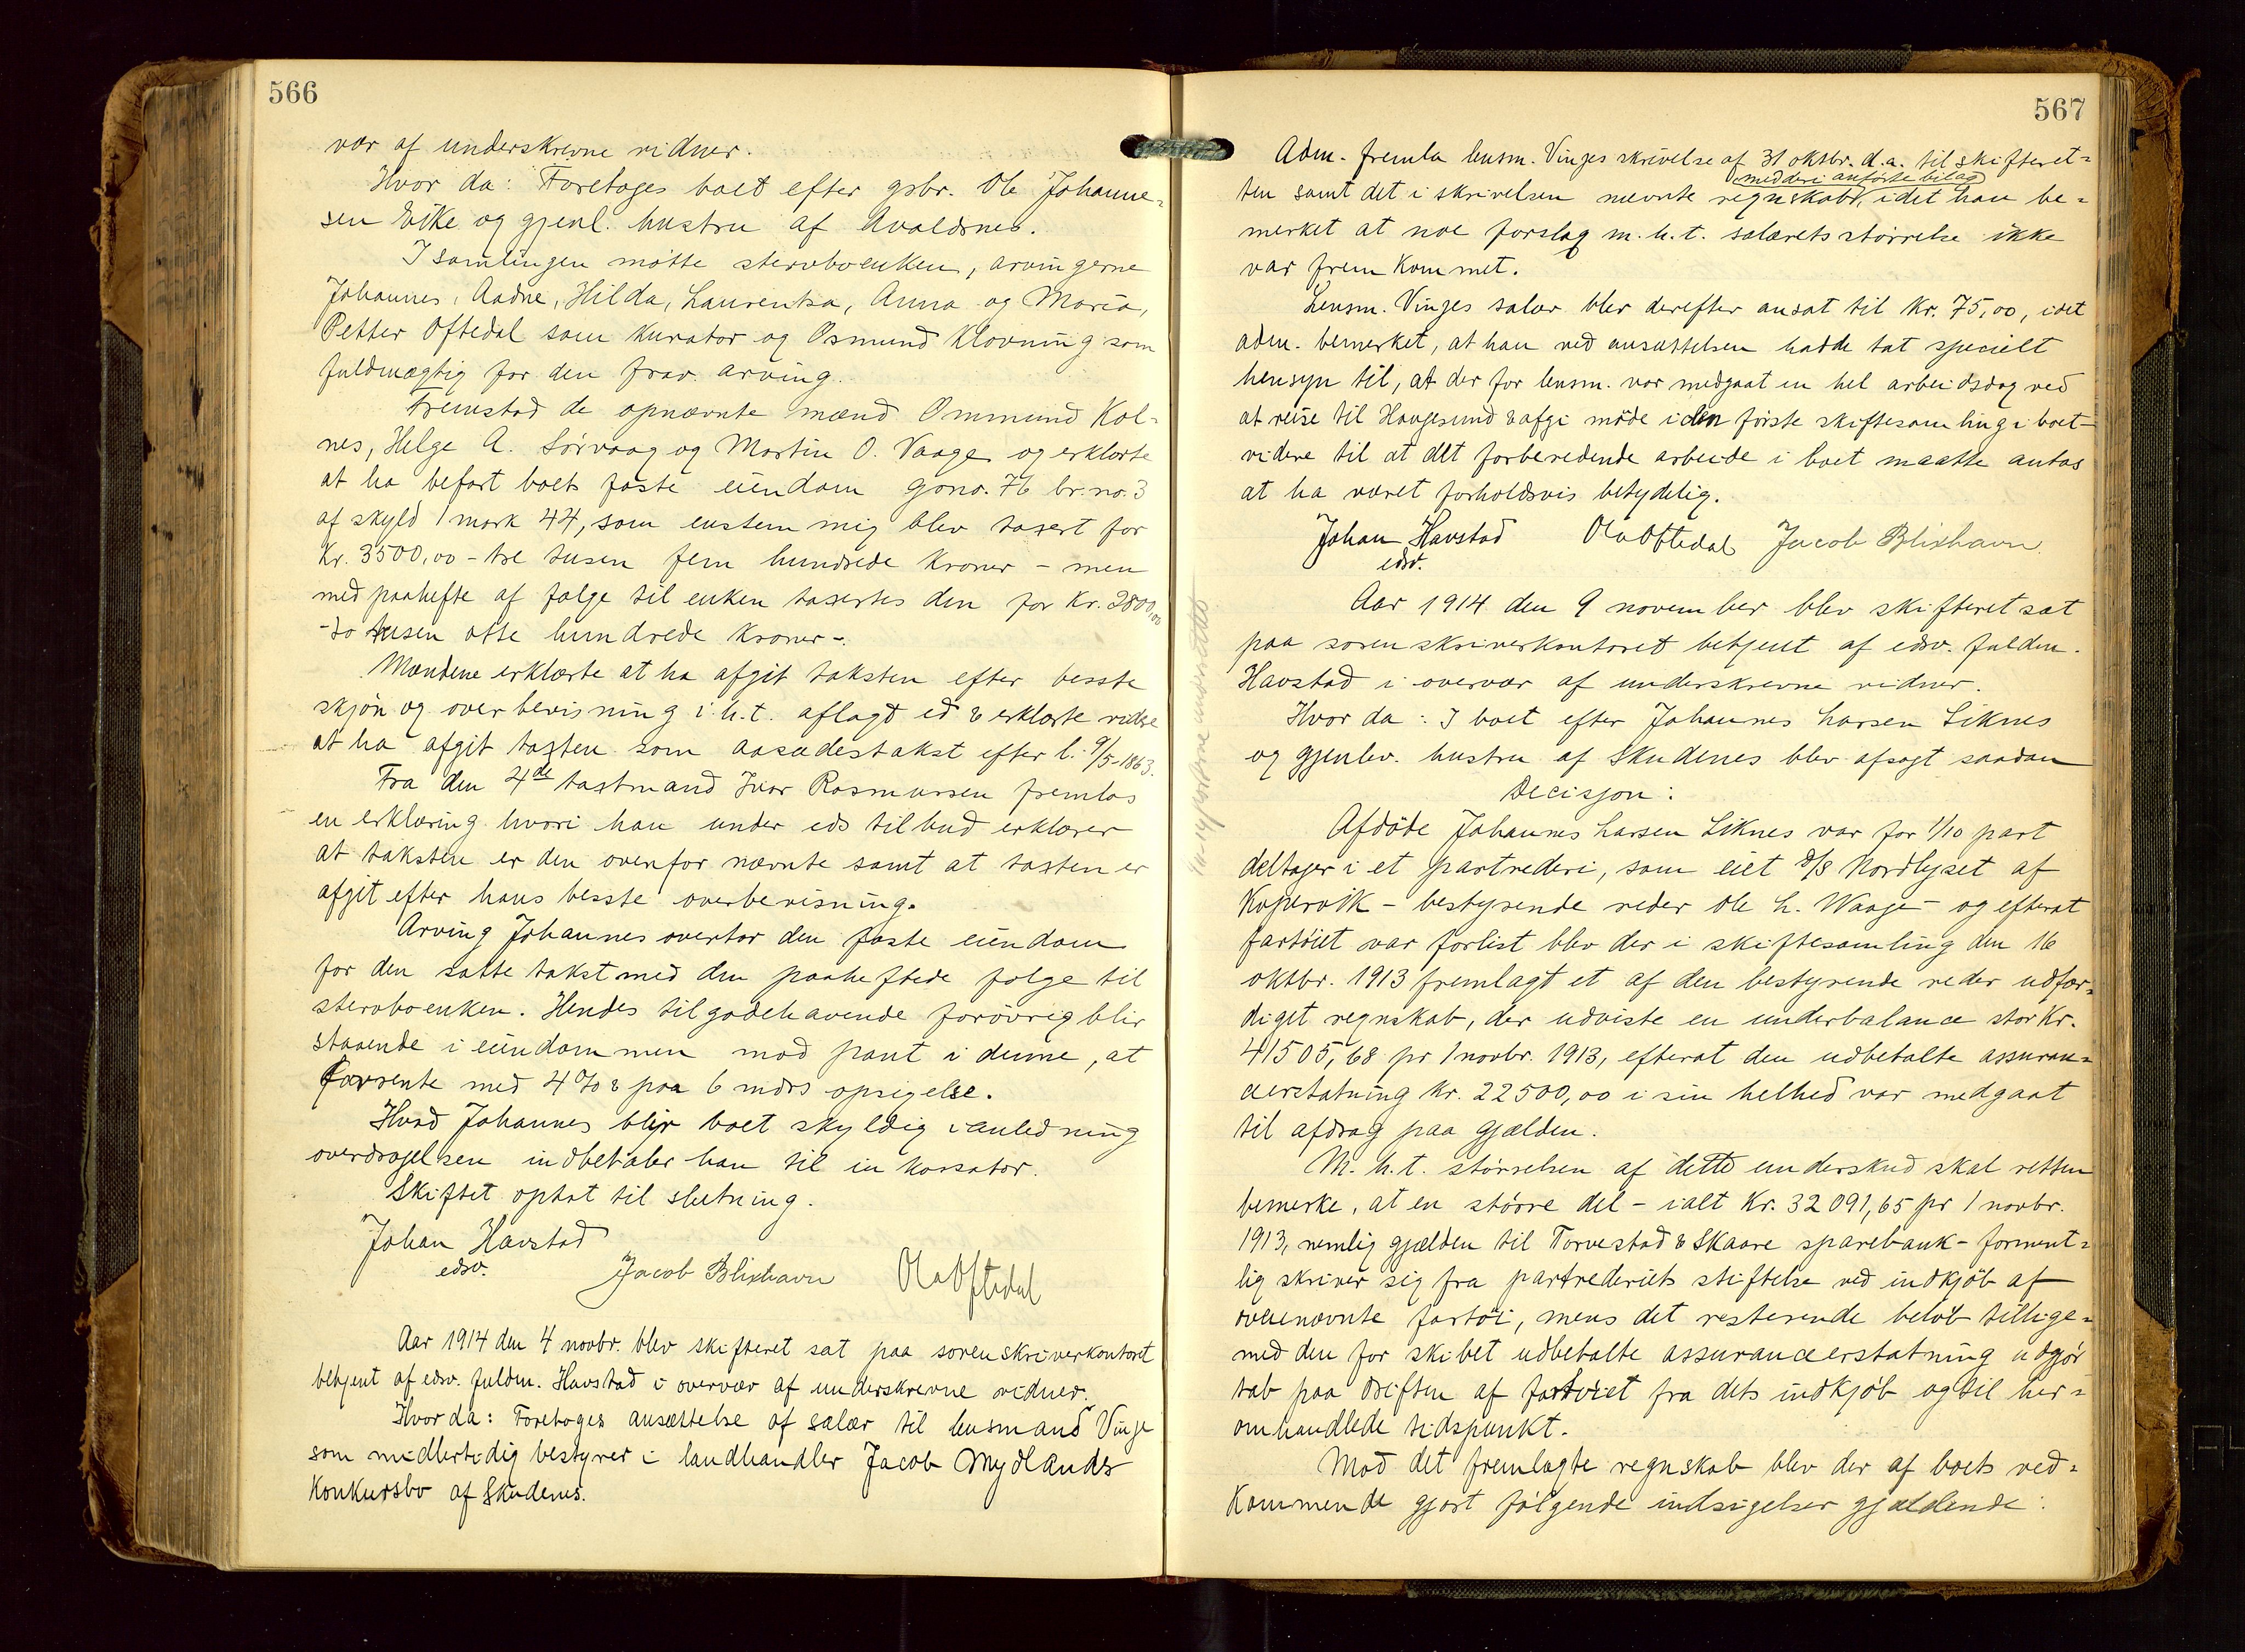 566
vær af underskrevne vidner.
Hvor da: Foretoges boet efter gbr. Ole Johanne-
sen Eike og gjenl. hustru af Avaldsnes.
I samlingen møtte stervboenken, arvingerne
Johannes, Aadne, Hilda, Laurentsa, Anna og Maria,
Petter Oftedal som kurator og Osmund Klovning som
fuldmægtig for den frav. arving.
Fremstod de opnævnte mænd Ommund Kol-
nes, Helge A. Sørvaag og Martin O. Vaage og erklærte
at ha befart boets faste eiendom gno. 76 br.no. 3
af skyld 1 mark 44, som enstemmig blev taxert for
Kr. 3500,00 - tre tusen fem hundrede kroner - men
med paahefte af følge til enken taxertes den for Kr. 2800,00
- to tusen otte hundrede kroner -.
Mændene erklærte at ha afgit taksten efter besste
skjøn og overbevisning i h.t. aflagd ed & erklærte vidre
at ha afgit taxten som aasædestakst efter l. 9/5-1863.
Fra den 4de taxtmand Ivar Rasmussen fremlas
en erklæring hvori han under eds tilbud erklærer
at taksten er den ovenfor nævnte samt at taxten er
afgit efter hans besste overbevisning.
Arving Johannes overtar den faste eiendom
for den satte takst med den paaheftede følge til
stervboenken. Hendes tilgodehavende forøvrig blir
staaende i eiendommen mod pant i denne, at
forrente med 4 % & paa 6 mdrs opsigelse.
Hvad Johannes blir boet skyldig i anledning
overdragelsen indbetaler han til inkassator.
Skiftet optat til slutning.
Johan Havstad
edsv.
Jacob Blixhavn Ola Oftedal
Aar 1914 den 4 novbr. blev skifteret sat paa sorenskriverkontoret
betjent af edsv. fuldm. Havstad i overvær af underskrevne vidner.
Hvor da: Foretoges ansættelse af salær til lensmand Vinje
som midlertidig bestyrer i landhandler Jacob Mydlands
Konkursbo af Skudenes.
567
Adm. fremla lensm. Vinjes skrivelse af 31 oktbr. d.a. til skifteret-
med deri anførte bilag
ten samt det i skrivelsen nævnte regnskab, idet han be-
merket at noe forslag m.h.t. salærets størrelse ikke
var fremkommet.
Lensm. Vinjes salær blev derefter ansat til kr. 75,00, idet
adm. bemerket, at han ved ansættelsen hadde tat specielt
hensyn til, at der for lensm. var medgaat en hel arbeidsdag ved
at reise til Haugesund & afgi møde i den første skiftesamling i boet -
videre til at det forberedende arbeide i boet maatte antas
at ha været forholdsvis betydelig.
Johan Havstad Ola Oftedal Jacob Blixhavn.
edsv.
Aar 1914 den 9 november blev skifteret sat
paa sorenskriverkontoret betjent af edsv. fuldm.
Havstad i overvær af underskrevne vidner.
Hvor da: I boet efter Johannes Larsen Liknes
og gjenlev. hustru af Skudenes blev afsagt saadan
Decisjon:
Afdøde Johannes Larsen Liknes var for 1/10 part
deltager i et partrederi, som eiet D/S Nordlyset af
Kopervik - bestyrende reder Ole L. Waage - og efterat
fartøiet var forlist blev der i skiftesamling den 16
oktbr. 1913 fremlagt et af den bestyrende reder udfær-
diget regnskab, der udviste en underbalance stor Kr.
41505,68 pr 1 novbr. 1913, efterat den udbetalte assuran-
ceerstatning kr. 22500,00 i sin helhed var medgaat
til afdrag paa gjælden.
M.h.t. størrelsen af dette underskud skal retten
bemerke, at en større del - ialt Kr. 32 091,65 pr 1 novbr.
1913, nemlig gjælden til Torvestad & Skaare sparebank - forment-
lig skriver sig fra partrederiets stiftelse ved indkjøb af
ovennævnte fartøi, mens det resterende beløb tillige-
med den for skibet udbetalte assuranceerstatning udgjør
tab paa driften af fartøiet fra dets indkjøb og til her-
omhandlede tidspunkt.
Mod det fremlagte regnskab blev der af boets ved-
kommende gjort følgende indsigelser gjældende: